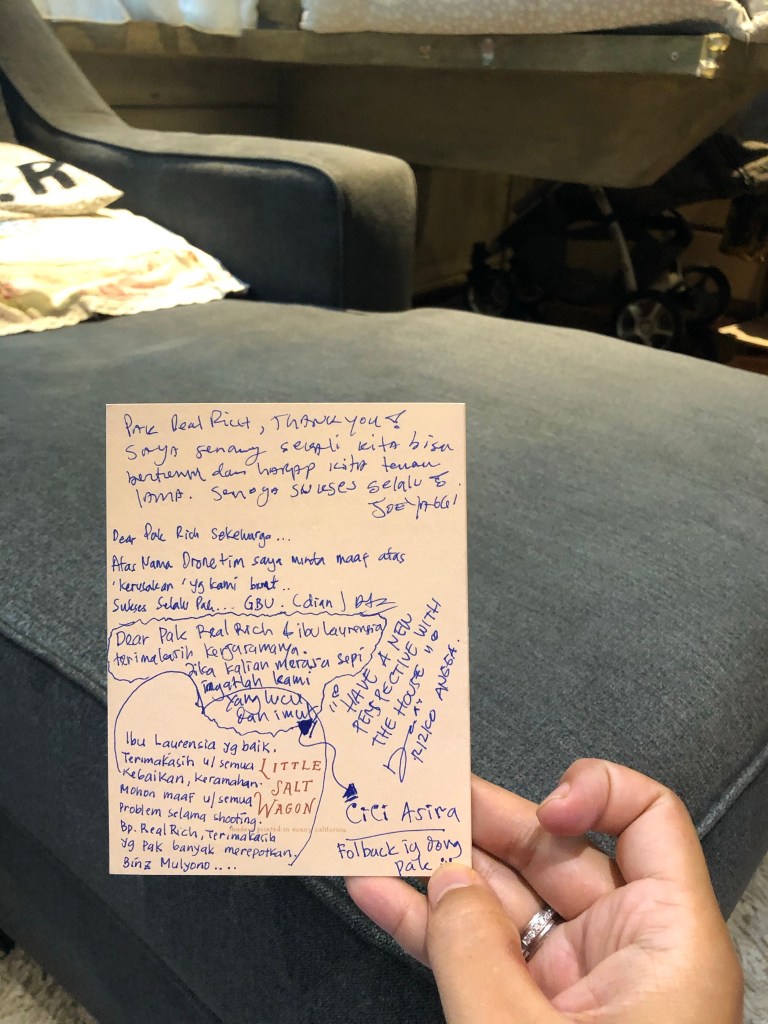 PAK Real Rich, THANK YOU!
SAYA senang sekali kita bisa
bertemu dan harap kita teman
lama. Semoga sukses selalu
Dear Pak Rich Sekeluarga...
Atas Nama Drone tim saya minta maaf atas
'kerusakan' yg kami buat..
Sukses Selalu Pak... GBU. (dian)
Dear Pak Real Rich & ibu Laurensia
terimakasih kerjasamanya.
Jika kalian merasa sepi
ingatlah kami
yang lucu
dan imut
HAVE A NEW
PERSPECTIVE WITH
THE HOUSE
RIZKO ANGGA.
Ibu Laurensia yg baik.
Terimakasih u/ semua
Kebaikan, keramahan.
Mohon maaf u/ semua
Problem selama shooting.
Bp. Real Rich, Terimakasih
yg Pak banyak merepotkan.
Binz Mulyono....
LITTLE
SALT
WAGON
printed in sunny california
CiCi Asira
Folback ig dong
pak
.R